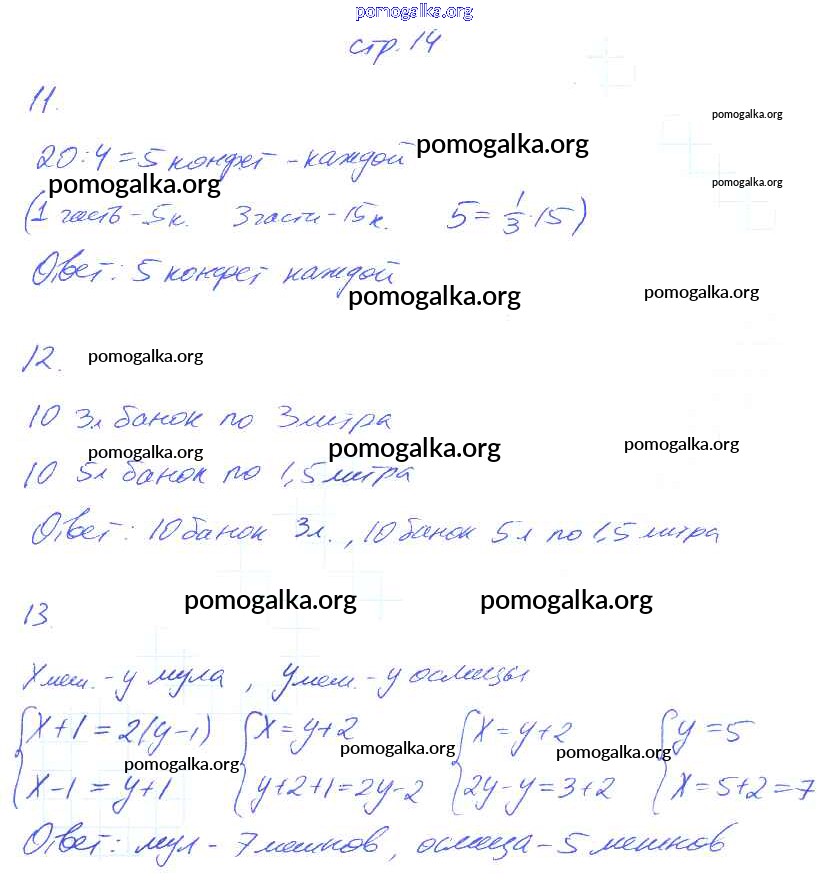 pomogalka.org
стр. 14
11.
pomogalka.org
20:4=5 конфет - каждой pomogalka.org
pomogalka.org pomogalka.org
(1 часть - 5 к. 3 части - 15 к. 5 = 1/3 · 15)
Ответ: 5 конфет каждой
pomogalka.org pomogalka.org
12. pomogalka.org
10 3л банок по 3 литра
pomogalka.org pomogalka.org pomogalka.org
10 5л банок по 1,5 литра
Ответ: 10 банок 3л., 10 банок 5л по 1,5 литра
13. pomogalka.org pomogalka.org
X меш. - у мула, У меш. - у ослицы
{X+1=2(y-1) {X=y+2 {X=y+2 {y=5
pomogalka.org pomogalka.org pomogalka.org
X-1=y+1 y+2+1=2y-2 2y-y=3+2 X=5+2=7
Ответ: мул - 7 мешков, ослица - 5 мешков